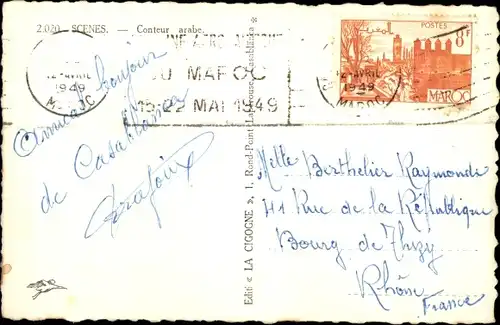 2.020 - SCENES. - Conteur arabe.
12 - AVRIL
1949
MAROC
DU MAROC
15-22 MAI 1949
12 - AVRIL
1949
MAROC
POSTES
8F
MAROC
Amical bonjour
de Casablanca
Edité « LA CIGOGNE », 1, Rond-Point
Casablanca
Melle Berthelier Raymonde
41 Rue de la République
Bourg de Thizy
Rhône
France